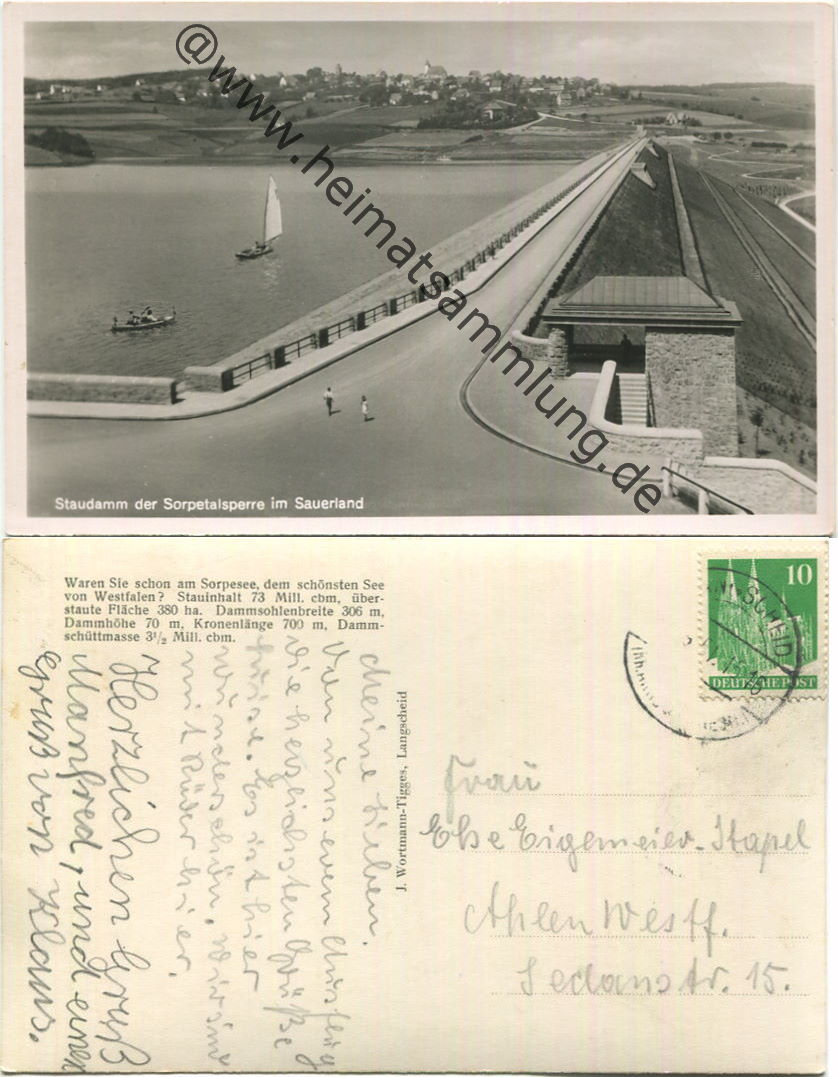 @www.heimatsammlung.de
Staudamm der Sorpetalsperre im Sauerland
Waren Sie schon am Sorpesee, dem schönsten See
von Westfalen? Stauinhalt 73 Mill. cbm, über-
staute Fläche 380 ha. Dammsohlenbreite 306 m,
Dammhöhe 70 m, Kronenlänge 700 m, Damm-
schüttmasse 3½ Mill. cbm.
10
DEUTSCHE POST
SCHEID
J. Wortmann-Tigges, Langscheid
Meine Lieben.
Von unserem Ausflug
die herzlichsten Grüße
Es ist hier
wunderschön. Wir sind
mit hier.
Herzlichen Gruß
Manfred, und einen
Gruß von Klaus.
Frau
Else Eigemeier-Stapel
Ahlen Westf.
Sedanstr. 15.